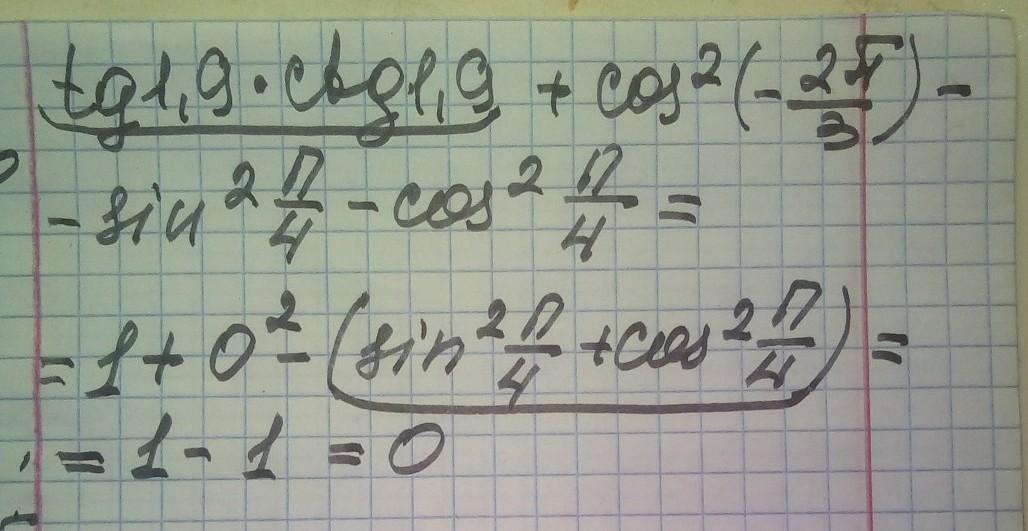 tg1,9 · ctg1,9 + cos²(-2π/3) -
- sin² π/4 - cos² π/4 =
= 1 + 0² - (sin² π/4 + cos² π/4) =
= 1 - 1 = 0